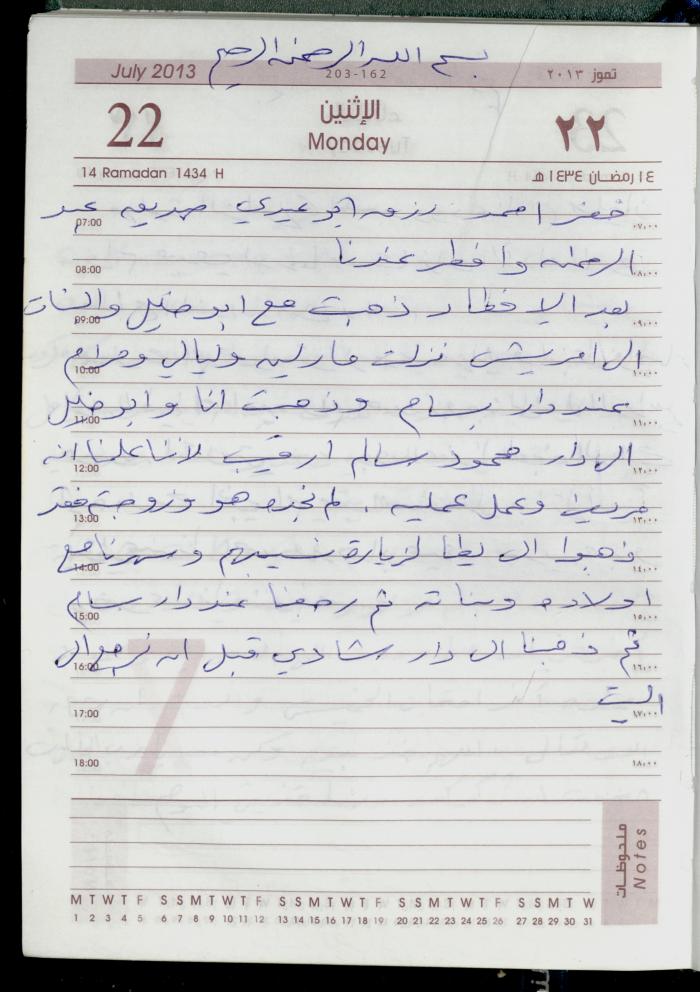 بسم الله الرحمن الرحيم
July 2013 203-162 تموز ٢٠١٣
22 الإثنين ٢٢
Monday
14 Ramadan 1434 H ١٤ رمضان ١٤٣٤ هـ
حضر احمد رزق ابو عيدي صديق عبد
07:00 ٠٧:٠٠
الرحمن وافطر عندنا
08:00 ٠٨:٠٠
بعد الافطار ذهبت مع ابو خليل والبنات
09:00 ٠٩:٠٠
الى امريش نزلت مارلين وليالي ومرام
10:00 ١٠:٠٠
عند دار بسام وذهبت انا وابو خليل
11:00 ١١:٠٠
الى دار محمود سالم ارقيب لاننا علمنا انه
12:00 ١٢:٠٠
مريض وعمل عمليه . لم نجده هو وزوجته فقد
13:00 ١٣:٠٠
ذهبوا الى يطا لزيارة نسيبهم وسهرنا مع
14:00 ١٤:٠٠
اولاده وبناته ثم رجعنا عند دار بسام
15:00 ١٥:٠٠
ثم ذهبنا الى دار شادي قبل ان نرجع الى
16:00 ١٦:٠٠
البيت
17:00 ١٧:٠٠
18:00 ١٨:٠٠
ملحوظات
Notes
M T W T F S S M T W T F S S M T W T F S S M T W T F S S M T W
1 2 3 4 5 6 7 8 9 10 11 12 13 14 15 16 17 18 19 20 21 22 23 24 25 26 27 28 29 30 31